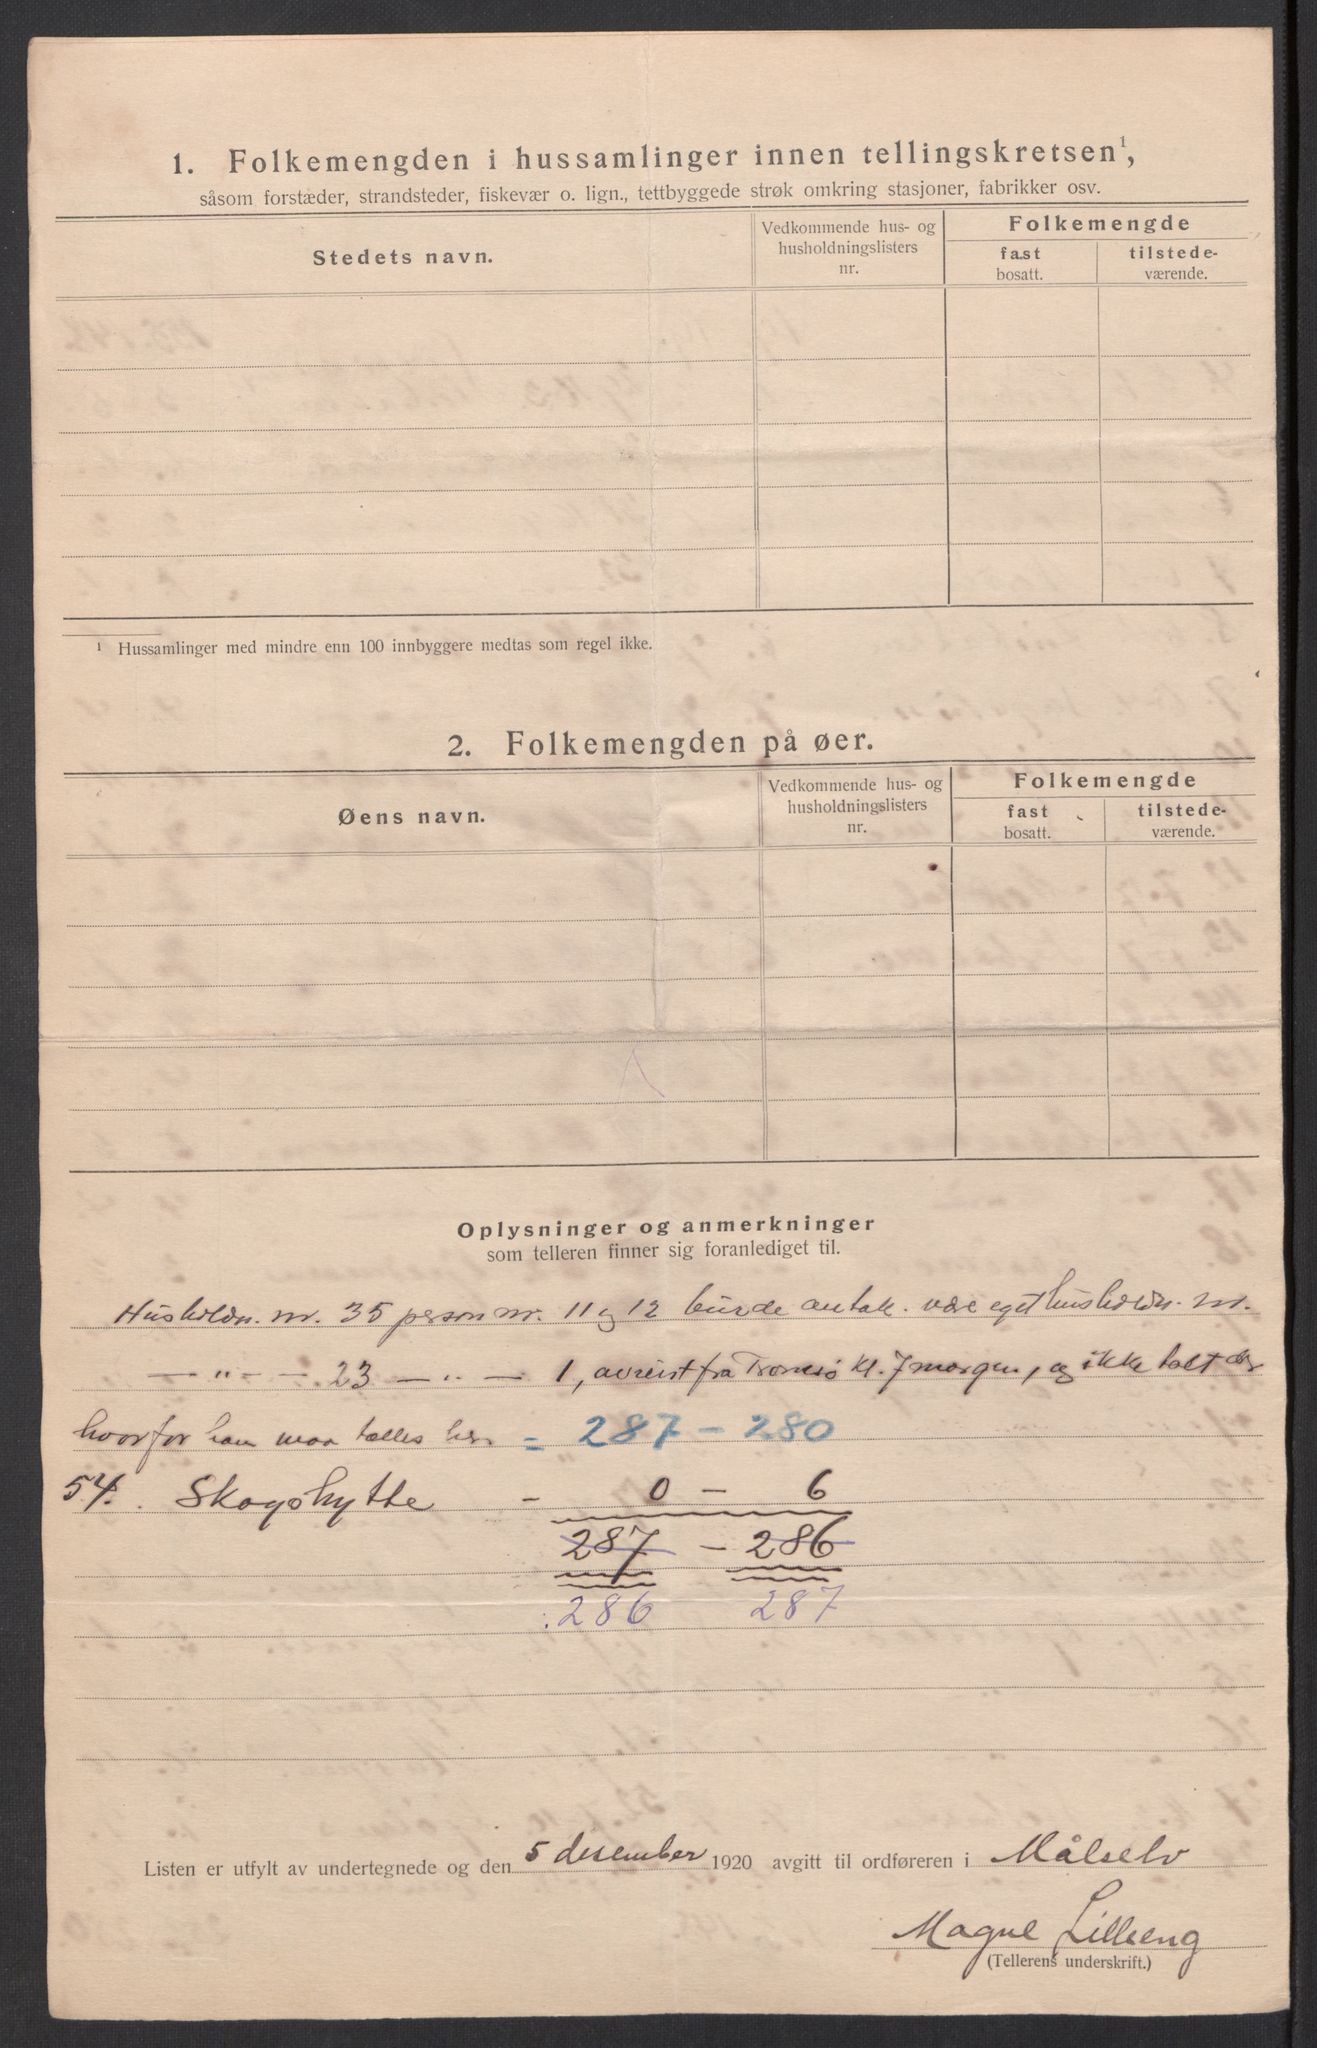 1. Folkemengden i hussamlinger innen tellingskretsen¹,
såsom forstæder, strandsteder, fiskevær o. lign., tettbyggede strøk omkring stasjoner, fabrikker osv.
Stedets navn.
Vedkommende hus- og
husholdningslisters
nr.
Folkemengde
fast
bosatt.
tilstede-
værende.
¹ Hussamlinger med mindre enn 100 innbyggere medtas som regel ikke.
2. Folkemengden på øer.
Øens navn.
Vedkommende hus- og
husholdningslisters
nr.
Folkemengde
fast
bosatt.
tilstede-
værende.
Oplysninger og anmerkninger
som telleren finner sig foranlediget til.
Husholdn. nr. 35 person nr. 11 og 12 burde antak. være eget husholdn. nr.
— " — — 23 — " — 1, avreist fra Tromsø kl. 7 morgen, og ikke talt der
hvorfor han maa tælles her. = 287 — 280
54. Skogshytte — 0 — 6
287 — 286
286 287
Listen er utfylt av undertegnede og den 5 desember 1920 avgitt til ordføreren i Målselv
Magne Lilleeng
(Tellerens underskrift.)